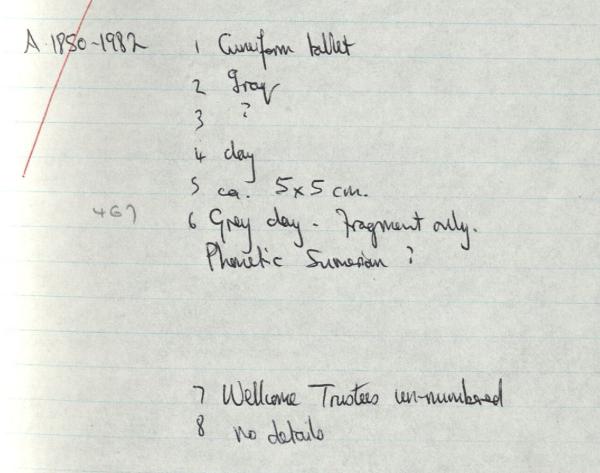 A.1980-1982 1 Cuneiform tablet
2 Iraq
3 ?
4 clay
5 ca. 5x5 cm.
467 6 Grey clay. Fragment only.
Phonetic Sumerian ?
7 Wellcome Trustees un-numbered
8 no details